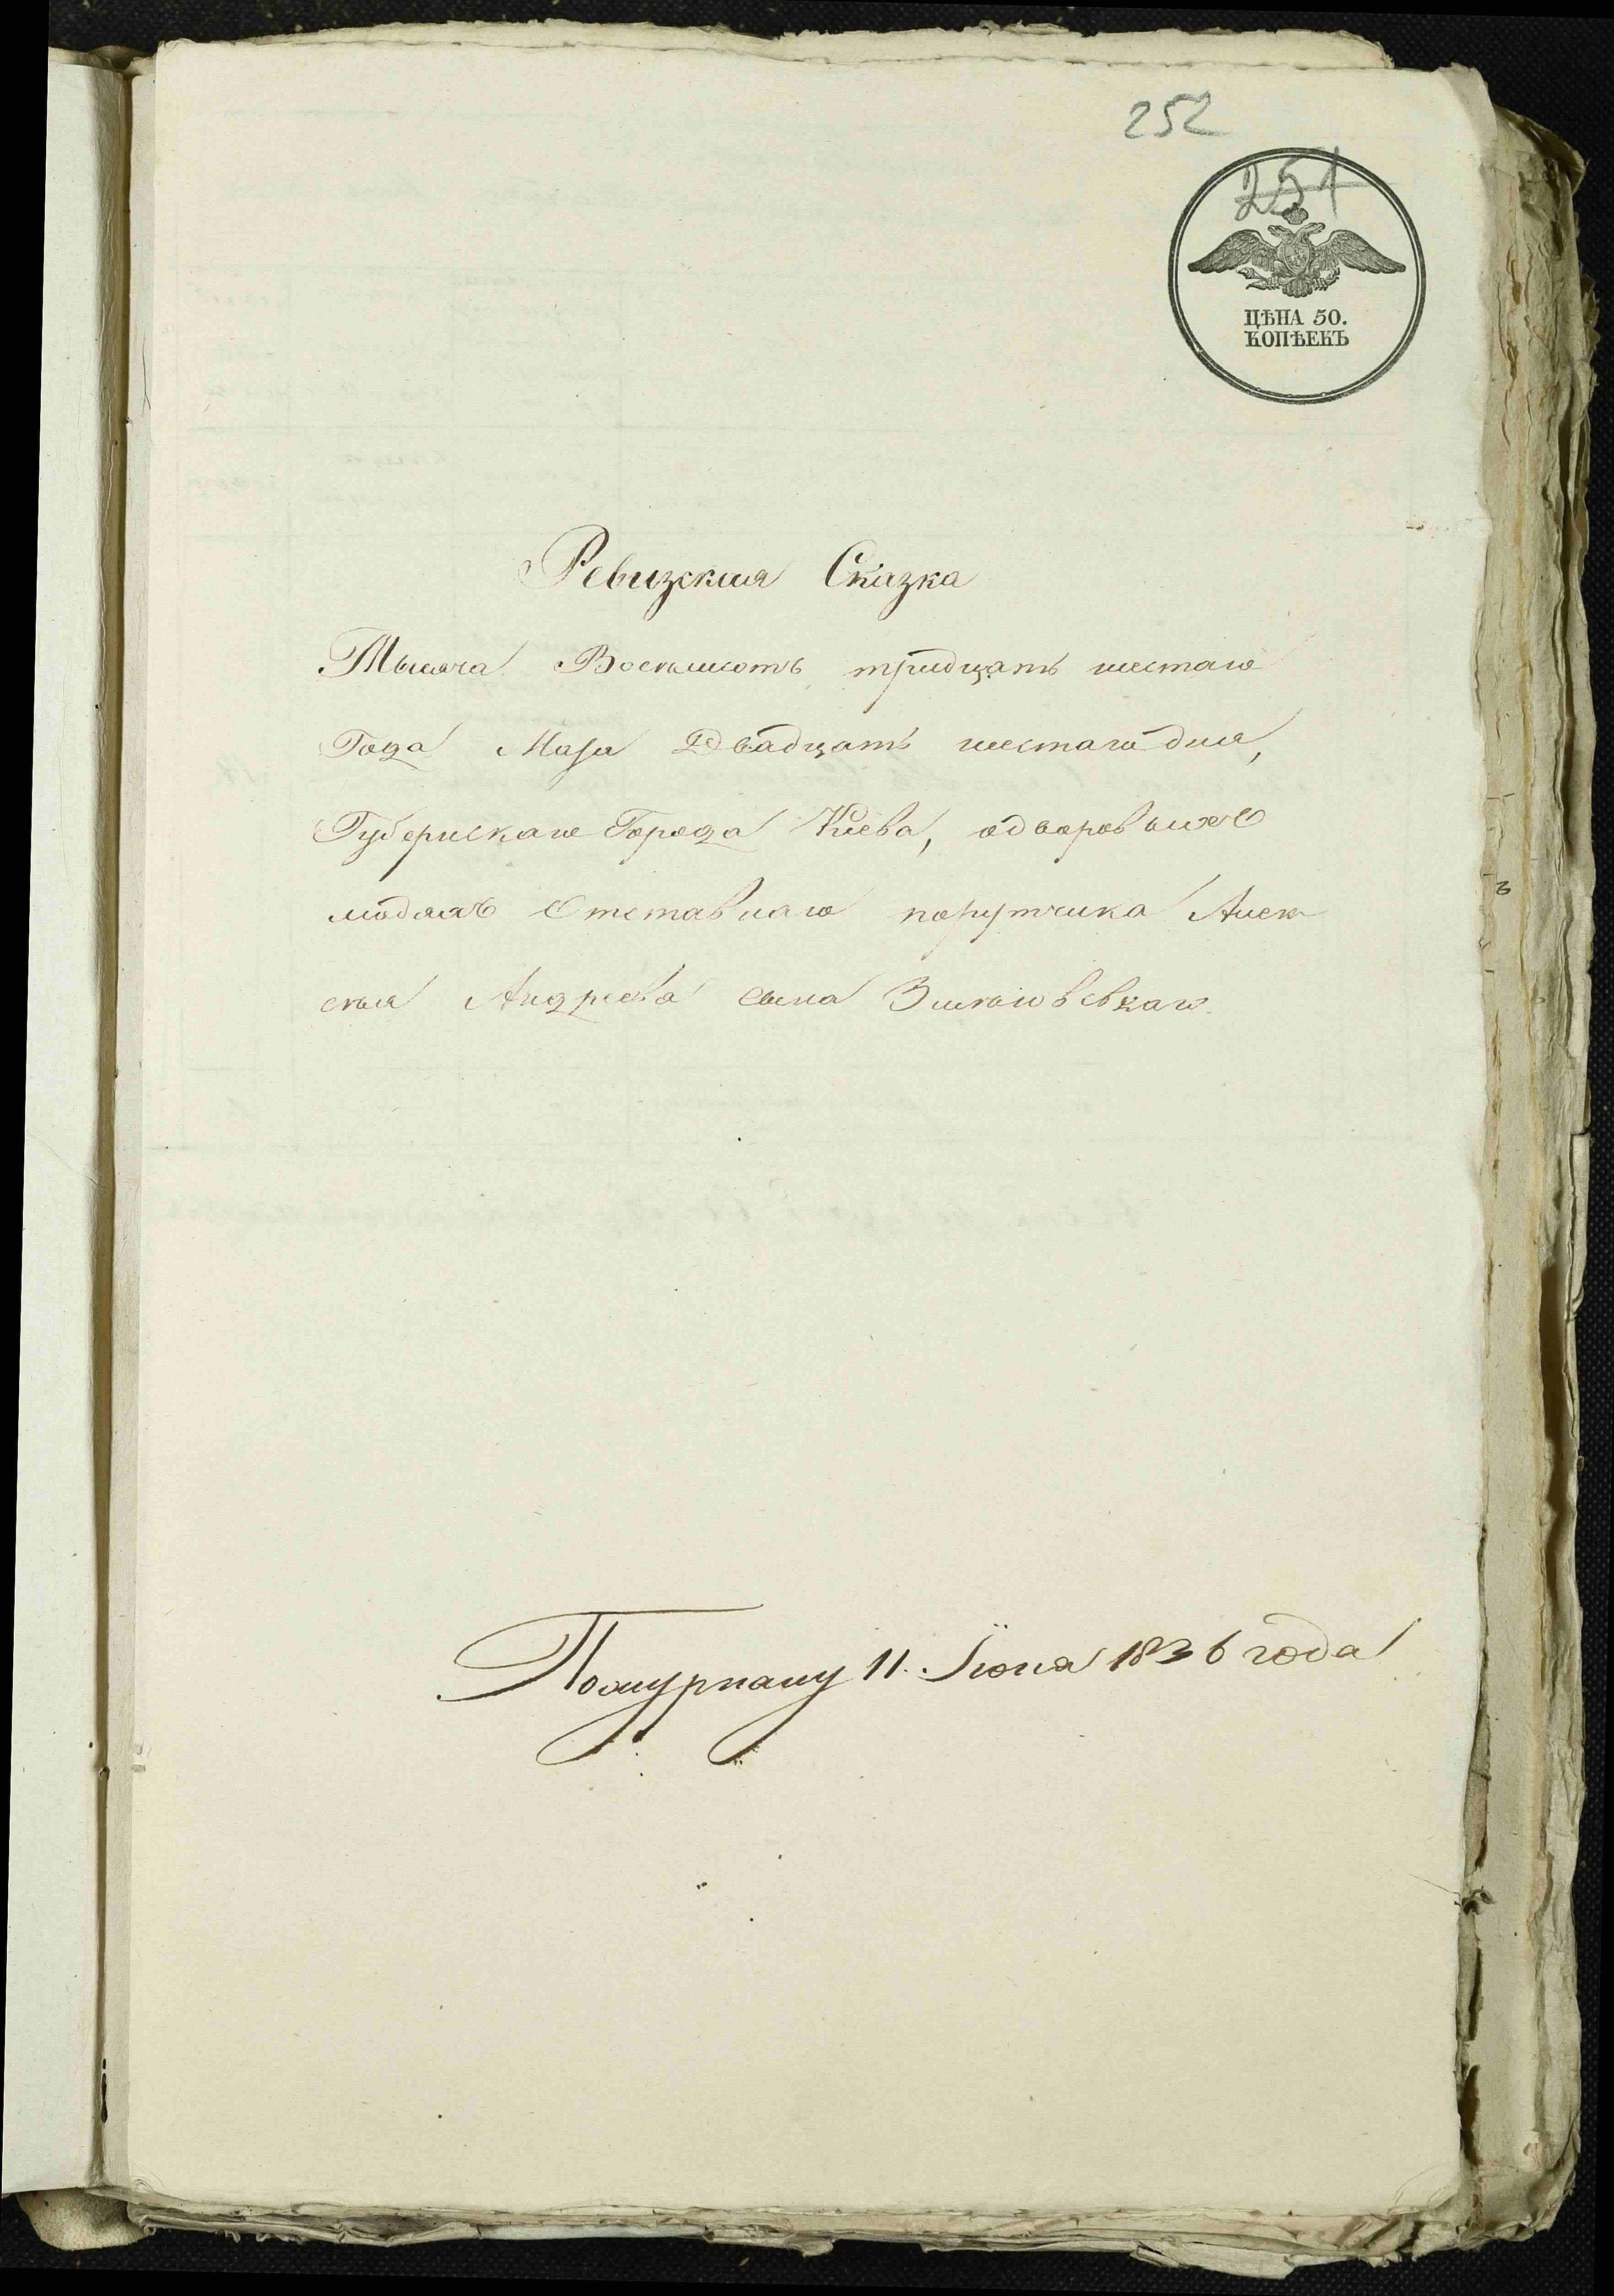 252
251
ЦѢНА 50.
КОПѢЕКЪ
Ревизская Сказка
Тысяча Восемьсотъ тридцать шестаго
Года Маія Двадцать шестаго дня,
Губернскаго Города Кіева, о дворовыхъ
людяхъ Отставнаго порутчика Алек
сѣя Андреева сына
11. Іюня 1836 года